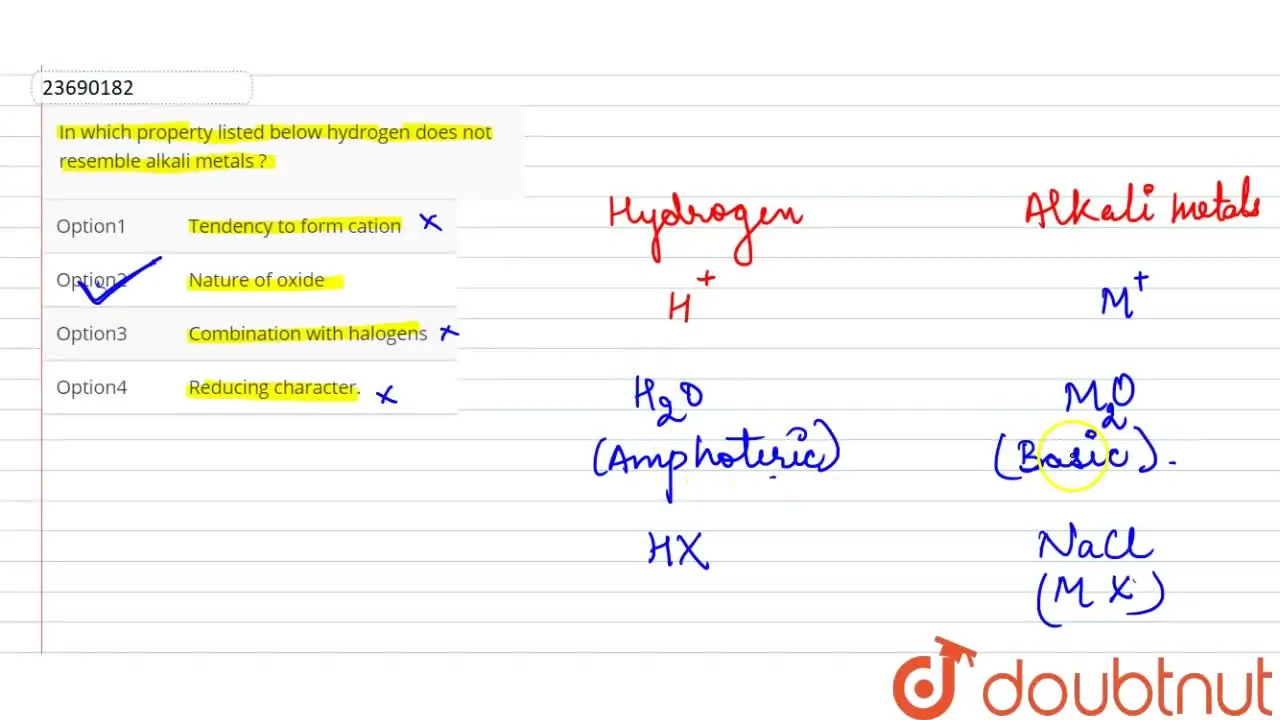 23690182
In which property listed below hydrogen does not
resemble alkali metals ?
Option1 Tendency to form cation x
Option2 Nature of oxide
Option3 Combination with halogens x
Option4 Reducing character. x
Hydrogen Alkali metals
H+ M+
H2O M2O
(Amphoteric) (Basic).
HX NaCl
(M X)
doubtnut